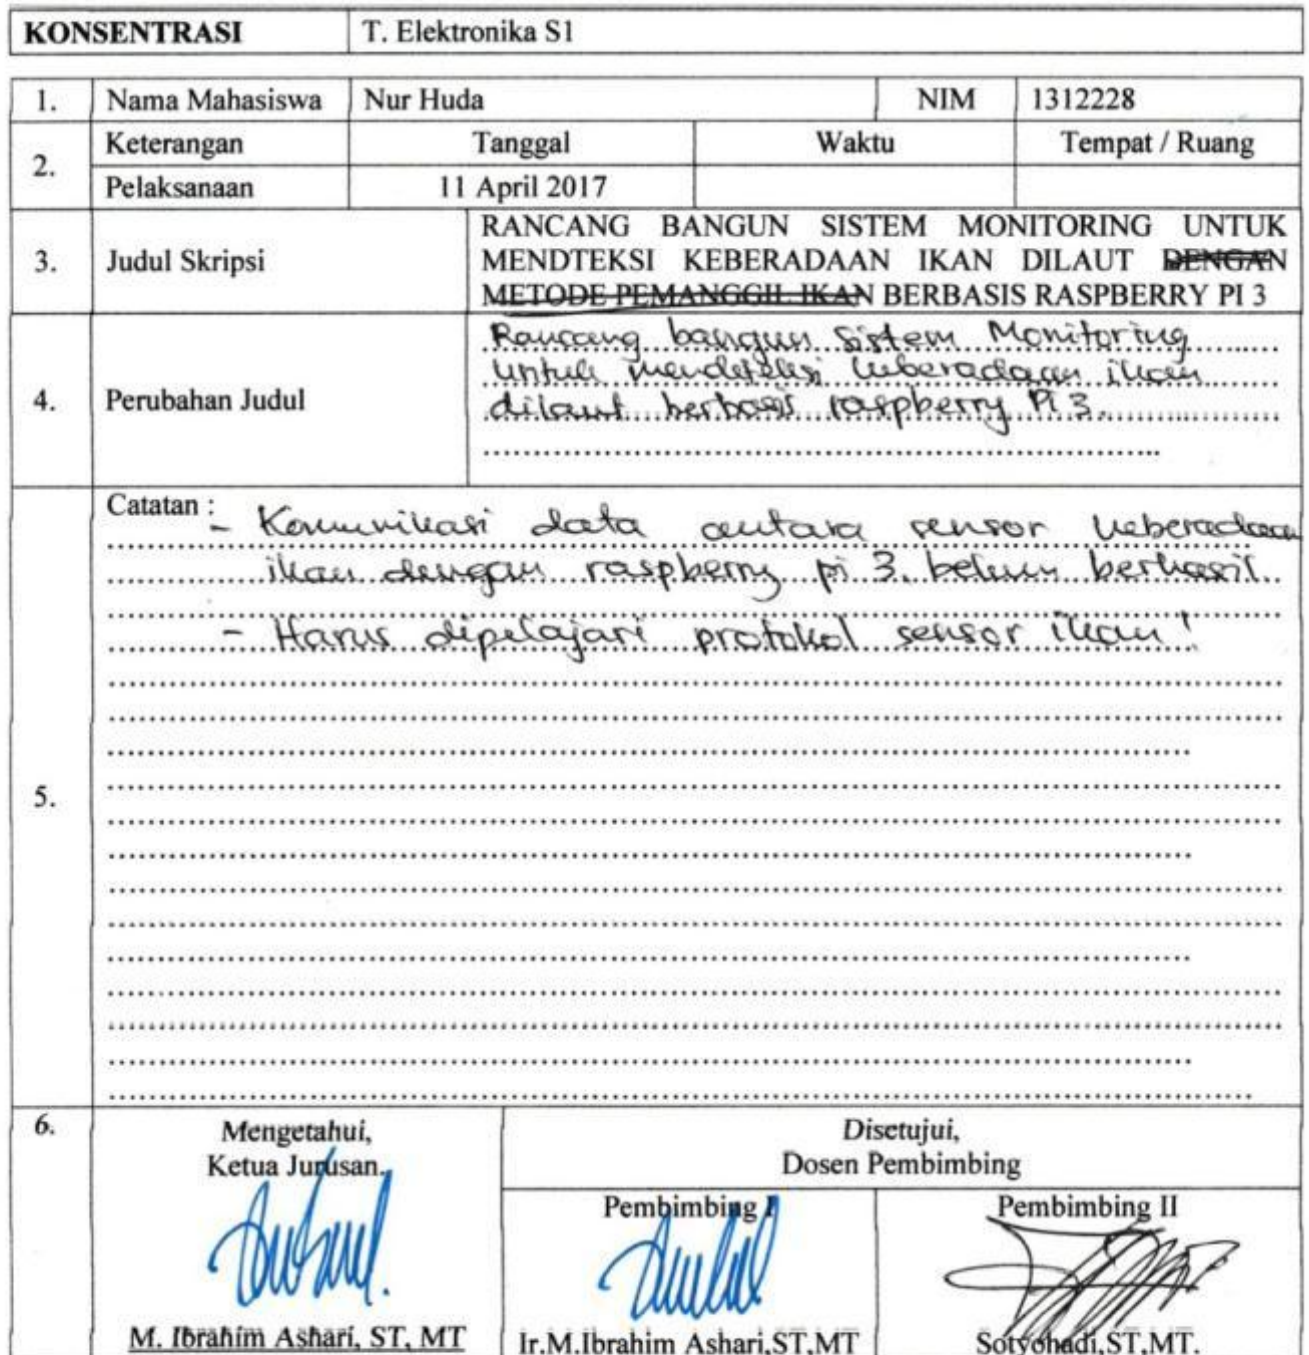 KONSENTRASI T. Elektronika S1
1. Nama Mahasiswa Nur Huda NIM 1312228
2. Keterangan Tanggal Waktu Tempat / Ruang
Pelaksanaan 11 April 2017
3. Judul Skripsi
RANCANG BANGUN SISTEM MONITORING UNTUK
MENDTEKSI KEBERADAAN IKAN DILAUT DENGAN
METODE PEMANGGIL IKAN BERBASIS RASPBERRY PI 3
4. Perubahan Judul
Rancang bangun Sistem Monitoring
untuk mendeteksi keberadaan ikan
dilaut berbasis raspberry Pi 3.
5. Catatan :
- Komunikasi data antara sensor keberadaan
ikan dengan raspberry pi 3. belum berhasil
- Harus dipelajari protokol sensor ikan !
6. Mengetahui,
Ketua Jurusan.
Disetujui,
Dosen Pembimbing
Pembimbing I Pembimbing II
M. Ibrahim Ashari, ST, MT Ir.M.Ibrahim Ashari,ST,MT Sotyohadi,ST,MT.